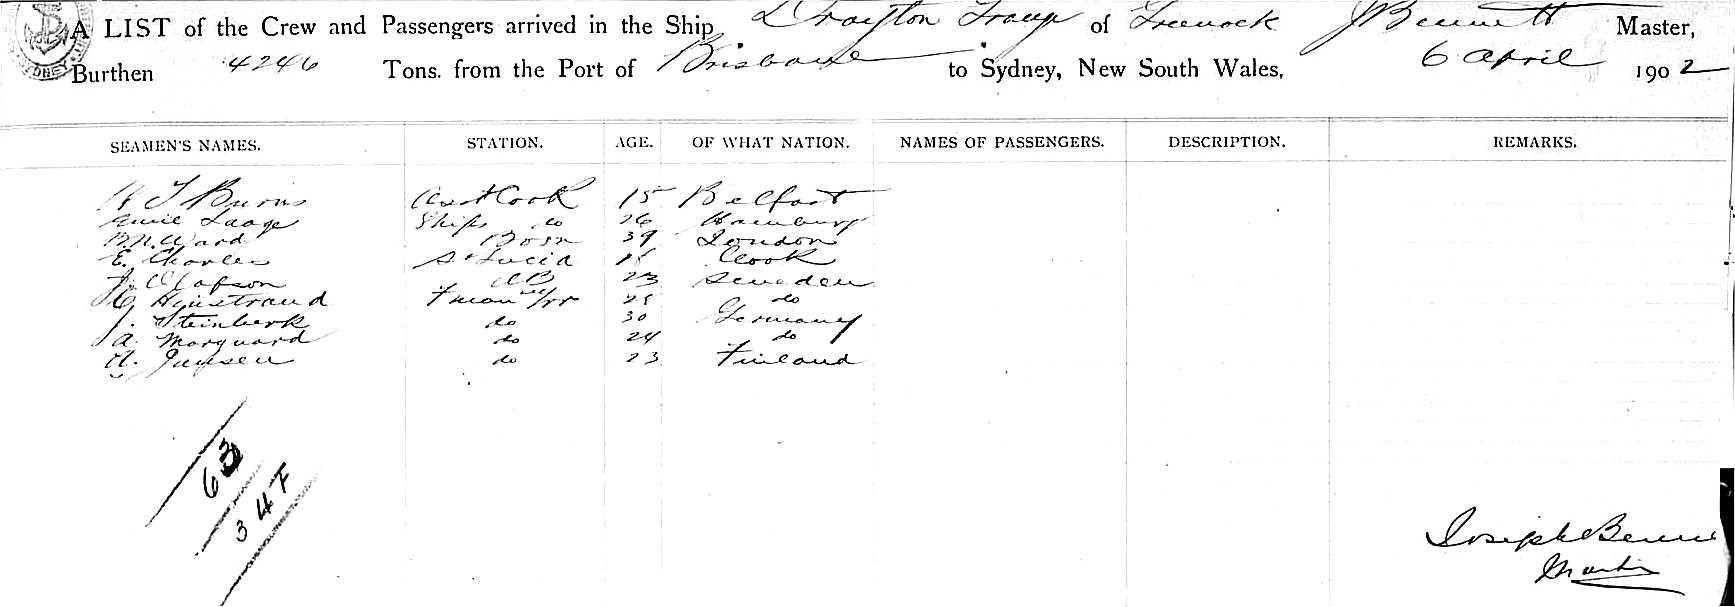 A LIST of the Crew and Passengers arrived in the Ship Drayton Grange of Greenock J Bennett Master,
Burthen 4246 Tons. from the Port of Brisbane to Sydney, New South Wales, 6 April 1902
SEAMEN'S NAMES. STATION. AGE. OF WHAT NATION. NAMES OF PASSENGERS. DESCRIPTION. REMARKS.
Burns Asst Cook 15 Belfast
Ships do 26 Hamburg
Ward Bosn 39 London
E. Charles St Lucia Cook
J. Olafson AB 23 Sweden
Hinstrand do
J. Steinberk do 30 Germany
A. Marquard do 24 do
A. Jansen do 23 Finland
63
34 F
Joseph Benn
Master